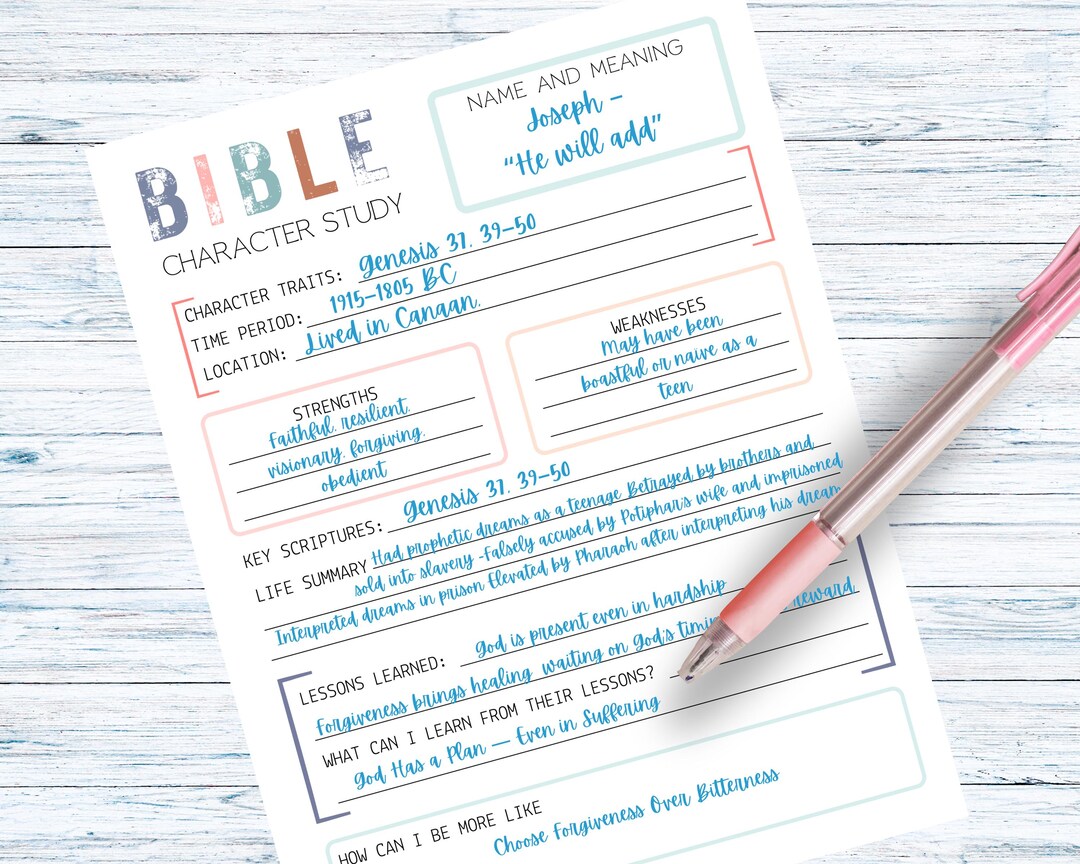 BIBLE
CHARACTER STUDY
NAME AND MEANING
Joseph –
"He will add"
CHARACTER TRAITS: Genesis 37, 39–50
TIME PERIOD: 1915–1805 BC
LOCATION: Lived in Canaan,
STRENGTHS
Faithful, resilient,
visionary, forgiving,
obedient
WEAKNESSES
May have been
boastful or naive as a
teen
KEY SCRIPTURES: Genesis 37, 39–50
LIFE SUMMARY Had prophetic dreams as a teenage Betrayed by brothers and
sold into slavery -Falsely accused by Potiphar's wife and imprisoned
Interpreted dreams in prison Elevated by Pharaoh after interpreting his dream
LESSONS LEARNED: God is present even in hardship
Forgiveness brings healing waiting on God's reward
WHAT CAN I LEARN FROM THEIR LESSONS?
God Has a Plan — Even in Suffering
HOW CAN I BE MORE LIKE
Choose Forgiveness Over Bitterness